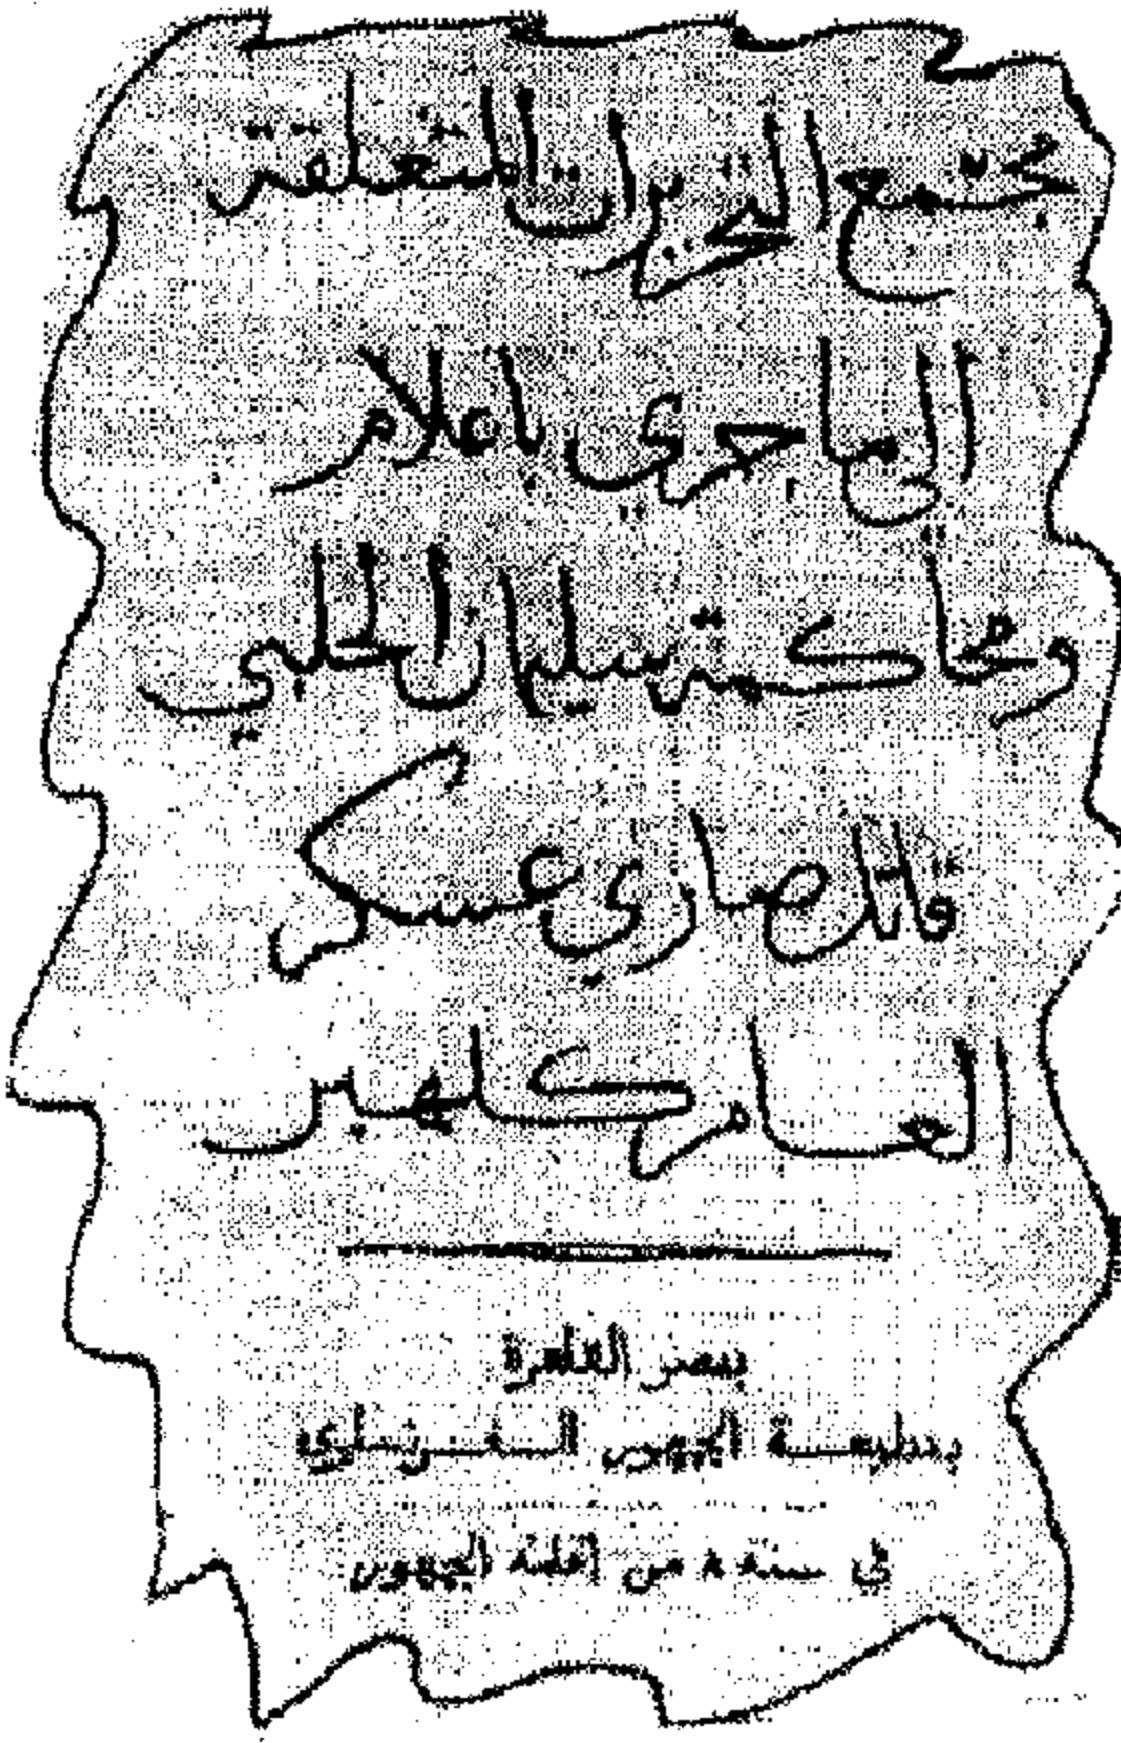 مجتمع التحريرات المتعلقة
الى ما جري باعلام
ومحاكمة سليمان الحلبي
قاتل صاري عسكر
العام كلهبر
بمصر القاهرة
بمطبعة الجمهور الفرنساوي
في سنة ٨ من اقامة الجمهور